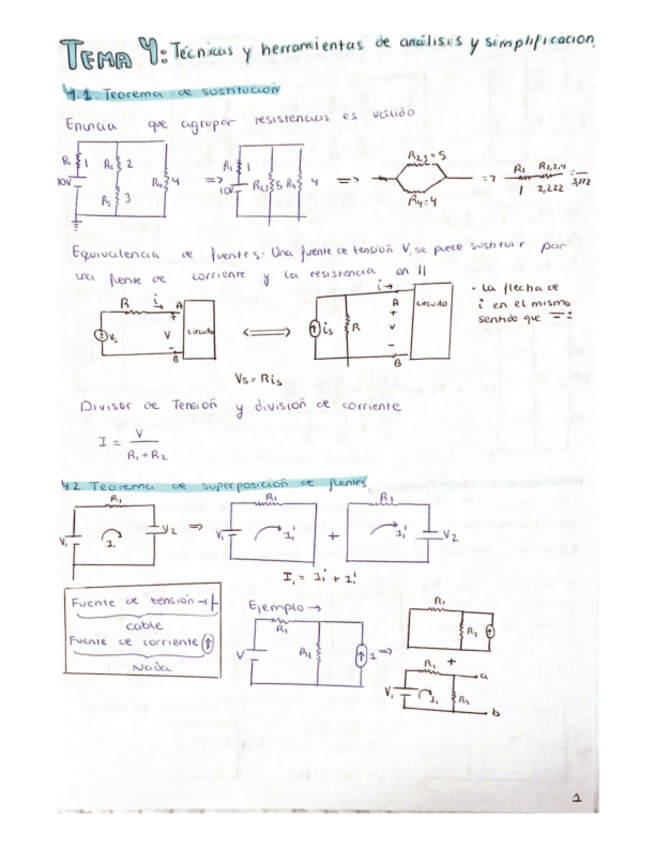 TEMA 4: Técnicas y herramientas de análisis y simplificación
4.1. Teorema de sustitución
Enuncia que agrupar resistencias es válido
R₁ 1 R₂ 2 R₄ 4 10V R₃ 3
=> R₁ 1 10V 5 R₄ 4
=> R₂,₃=5 R₄=4
=> R₁ R₂,₃,₄ 1 2,222
Equivalencia de fuentes: Una fuente de tensión V, se puede sustituir por
una fuente de corriente y la resistencia en ||
R i A + V - B Vs circuito
i A + V - B is R circuito
· La flecha de
i en el mismo
sentido que
Vs = Ris
Divisor de Tensión y división de corriente
I = V / R₁+R₂
4.2. Teorema de superposición de fuentes
R₁ V₁ I₁ V₂ => R₁ V₁ I₁' + R₁ I₁' V₂
I₁ = I₁' + I₁'
Fuente de tensión
cable
Fuente de corriente
Nada
Ejemplo →
R₁ V I =>
R₁ R₂
+
R₁ a V₁ I₁ R₂ b
1